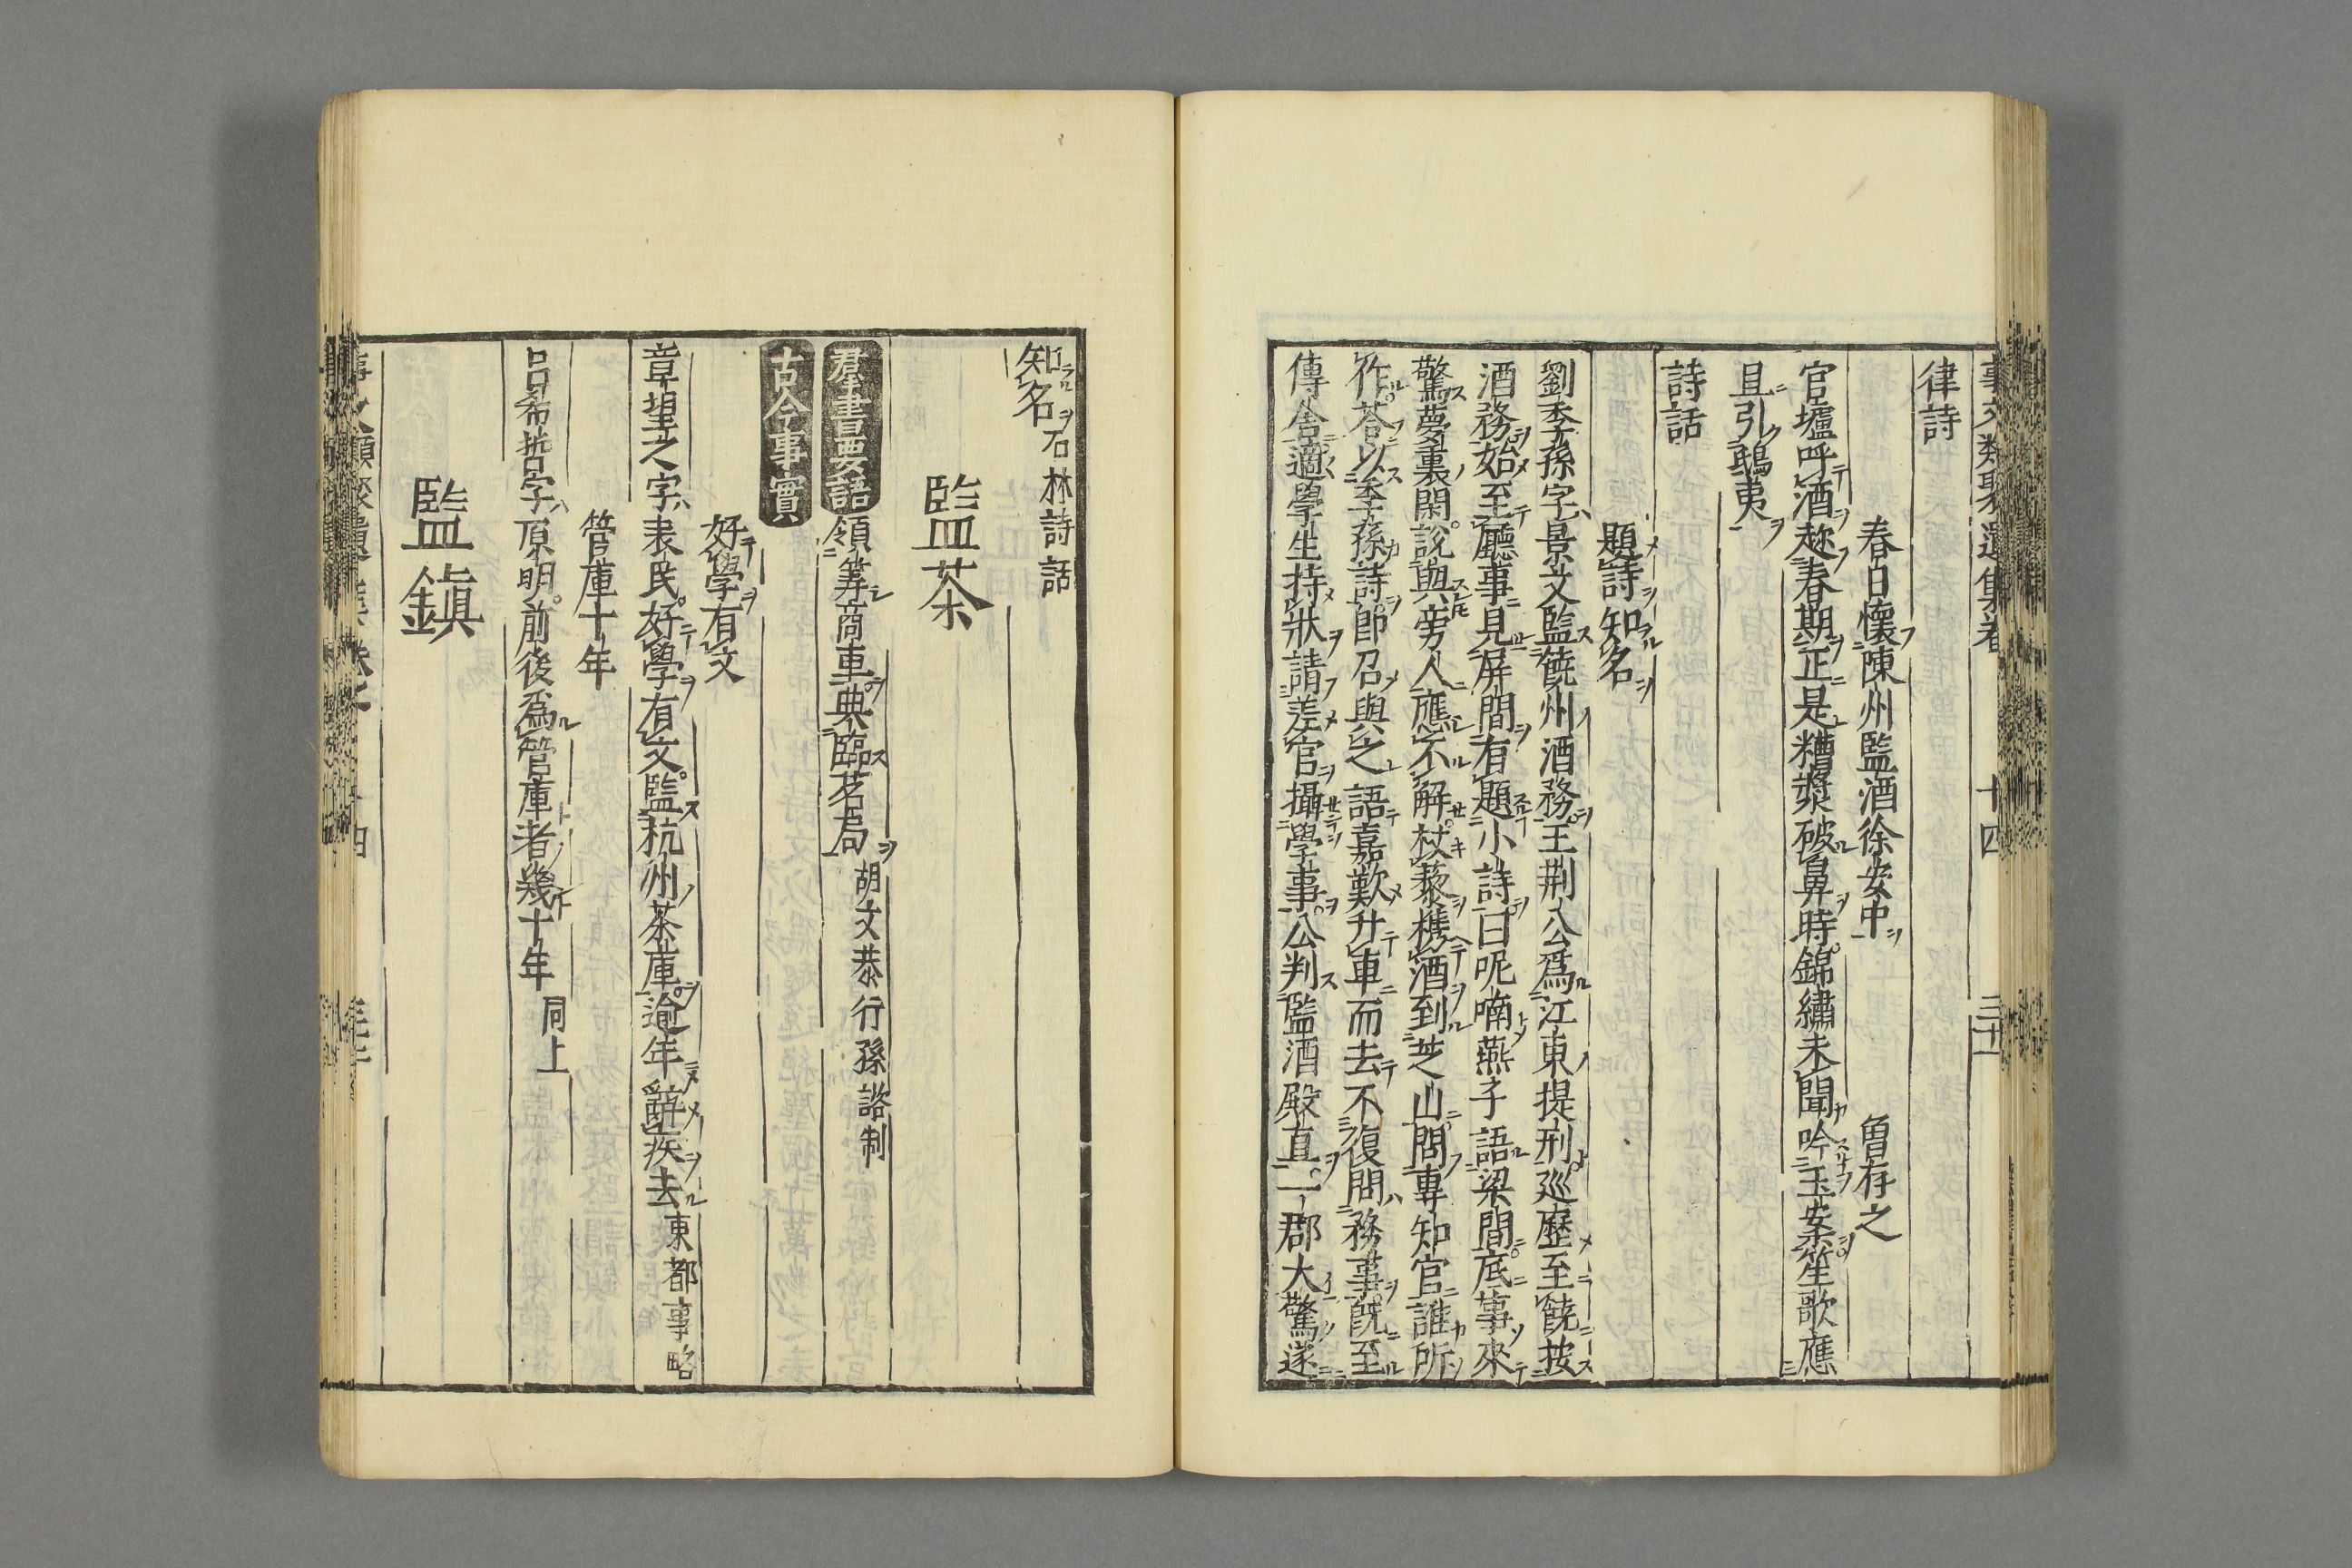 事文類聚遺集卷 十四 三十一
律詩
春日懷陳州監酒徐安中 曾存之
官壚呼酒趂春期正是糟漿破鼻時錦繡未聞吟玉案笙歌應
且引鴟夷
詩話
題詩知名
劉季孫字景文監饒州酒務王荆公爲江東提刑巡歷至饒按
酒務始至廳事見屏間有題小詩曰呢喃燕子語梁間底事來
驚夢裏閑說與旁人應不解杖藜携酒到芝山問專知官誰所
作荅以季孫詩即召與之語嘉歎升車而去不復問務事既至
傳舍適學生持狀請差官攝學事公判監酒殿直一郡大驚遂
知名石林詩話
監茶
羣書要語領筭商車典臨茗局胡文恭行孫諮制
古今事實
好學有文
章望之字表民好學有文監杭州茶庫逾年辭疾去東都事略
管庫十年
吕希哲字原明前後爲管庫者幾十年同上
監鎭